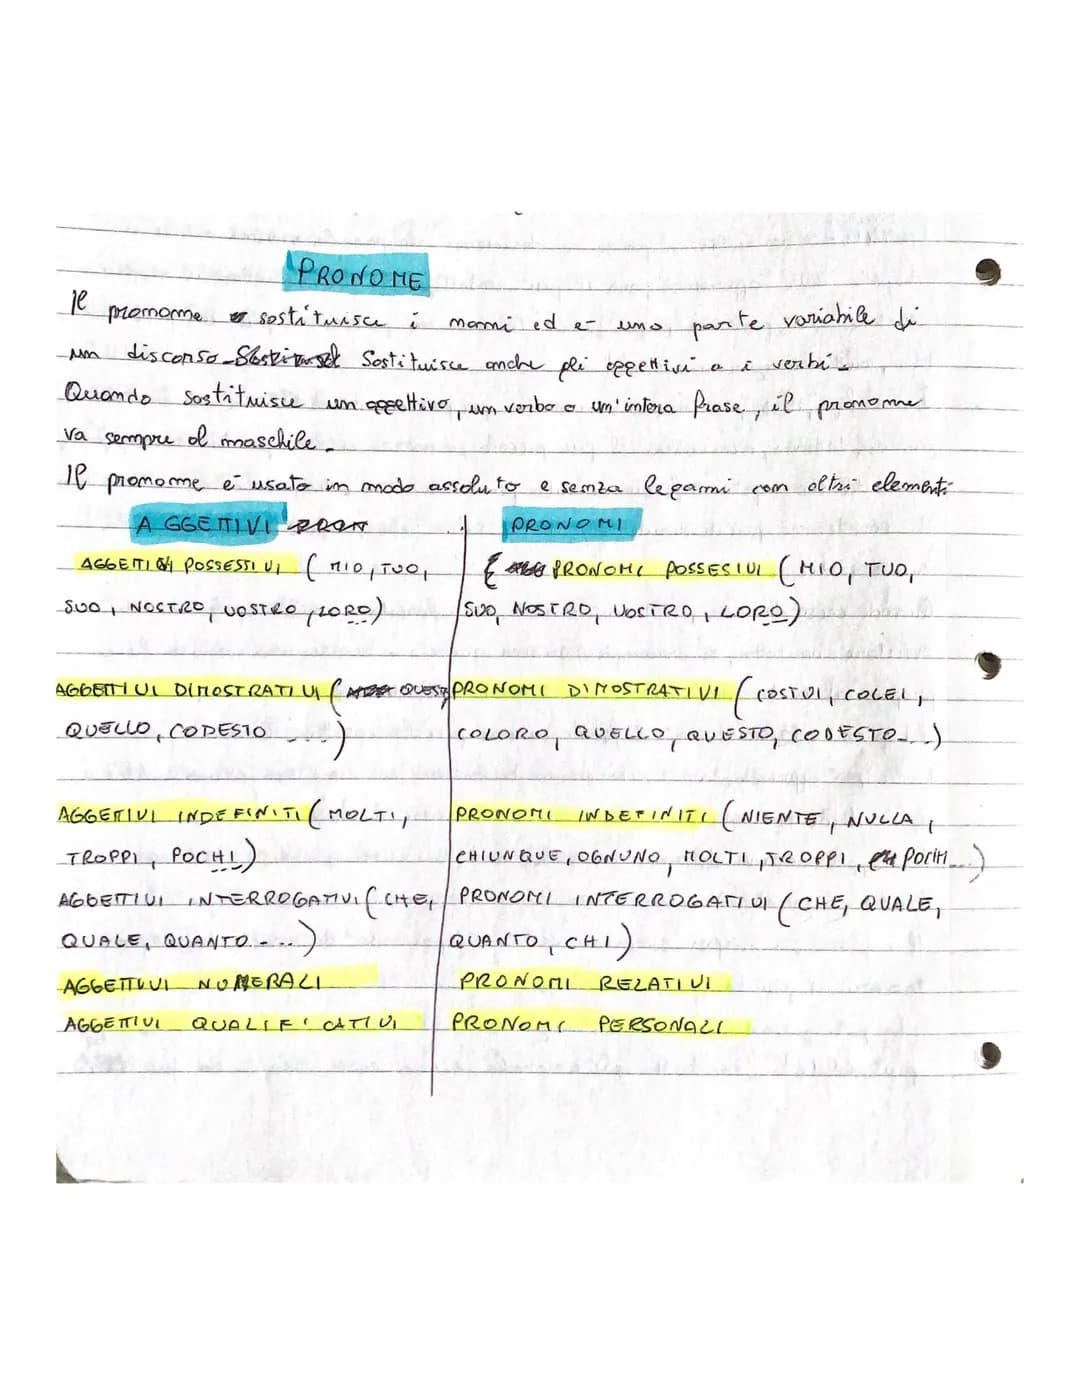 PRONOME
Il pronome sostituisce i nomi ed è una parte variabile di
un discorso. Sostituisce anche gli aggettivi o i verbi.
Quando sostituisce un aggettivo, un verbo o un'intera frase, il pronome
va sempre al maschile.
Il pronome è usato in modo assoluto e senza legami con altri elementi
AGGETTIVI PRONOMI
AGGETTIVI POSSESSIVI (MIO, TUO, PRONOMI POSSESIVI (MIO, TUO,
SUO, NOSTRO, VOSTRO, LORO) SUO, NOSTRO, VOSTRO, LORO)
AGGETTIVI DIMOSTRATIVI (QUESTO PRONOMI DIMOSTRATIVI (COSTUI, COLEI,
QUELLO, CODESTO ....) COLORO, QUELLO, QUESTO, CODESTO...)
AGGETIVI INDEFINITI (MOLTI, PRONOMI INDEFINITI (NIENTE, NULLA,
TROPPI, POCHI) CHIUNQUE, OGNUNO, MOLTI, TROPPI, POCHI...)
AGGETTIVI INTERROGATIVI (CHE, PRONOMI INTERROGATIVI (CHE, QUALE,
QUALE, QUANTO....) QUANTO, CHI)
AGGETTIVI NUMERALI PRONOMI RELATIVI
AGGETTIVI QUALIFICATIVI PRONOMI PERSONALI